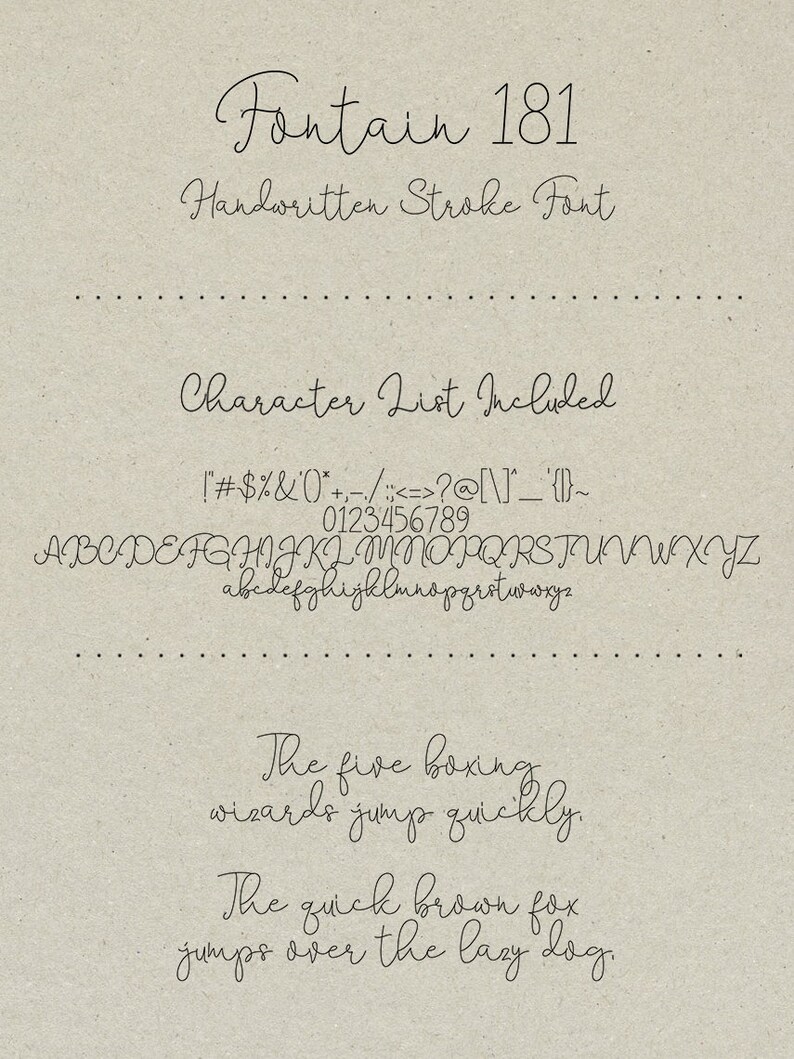 Fontain 181
Handwritten Stroke Font
Character List Included
!"#$%&'()*+,-./:;<=>?@[\]^_`{|}~
0123456789
ABCDEFGHIJKLMNOPQRSTUVWXYZ
abcdefghijklmnopqrstuvwxyz
The five boxing
wizards jump quickly.
The quick brown fox
jumps over the lazy dog.